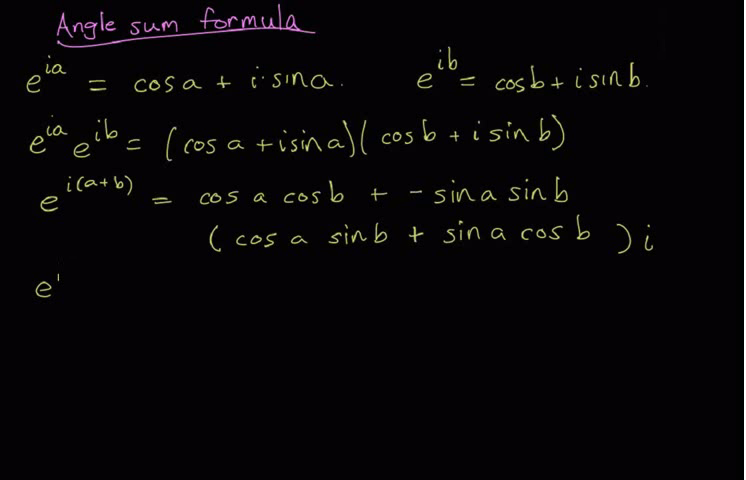 Angle sum formula
e^{ia} = cos a + i·sin a. e^{ib} = cos b + i sin b.
e^{ia} e^{ib} = (cos a + i sin a)(cos b + i sin b)
e^{i(a+b)} = cos a cos b + - sin a sin b
(cos a sin b + sin a cos b) i
e'